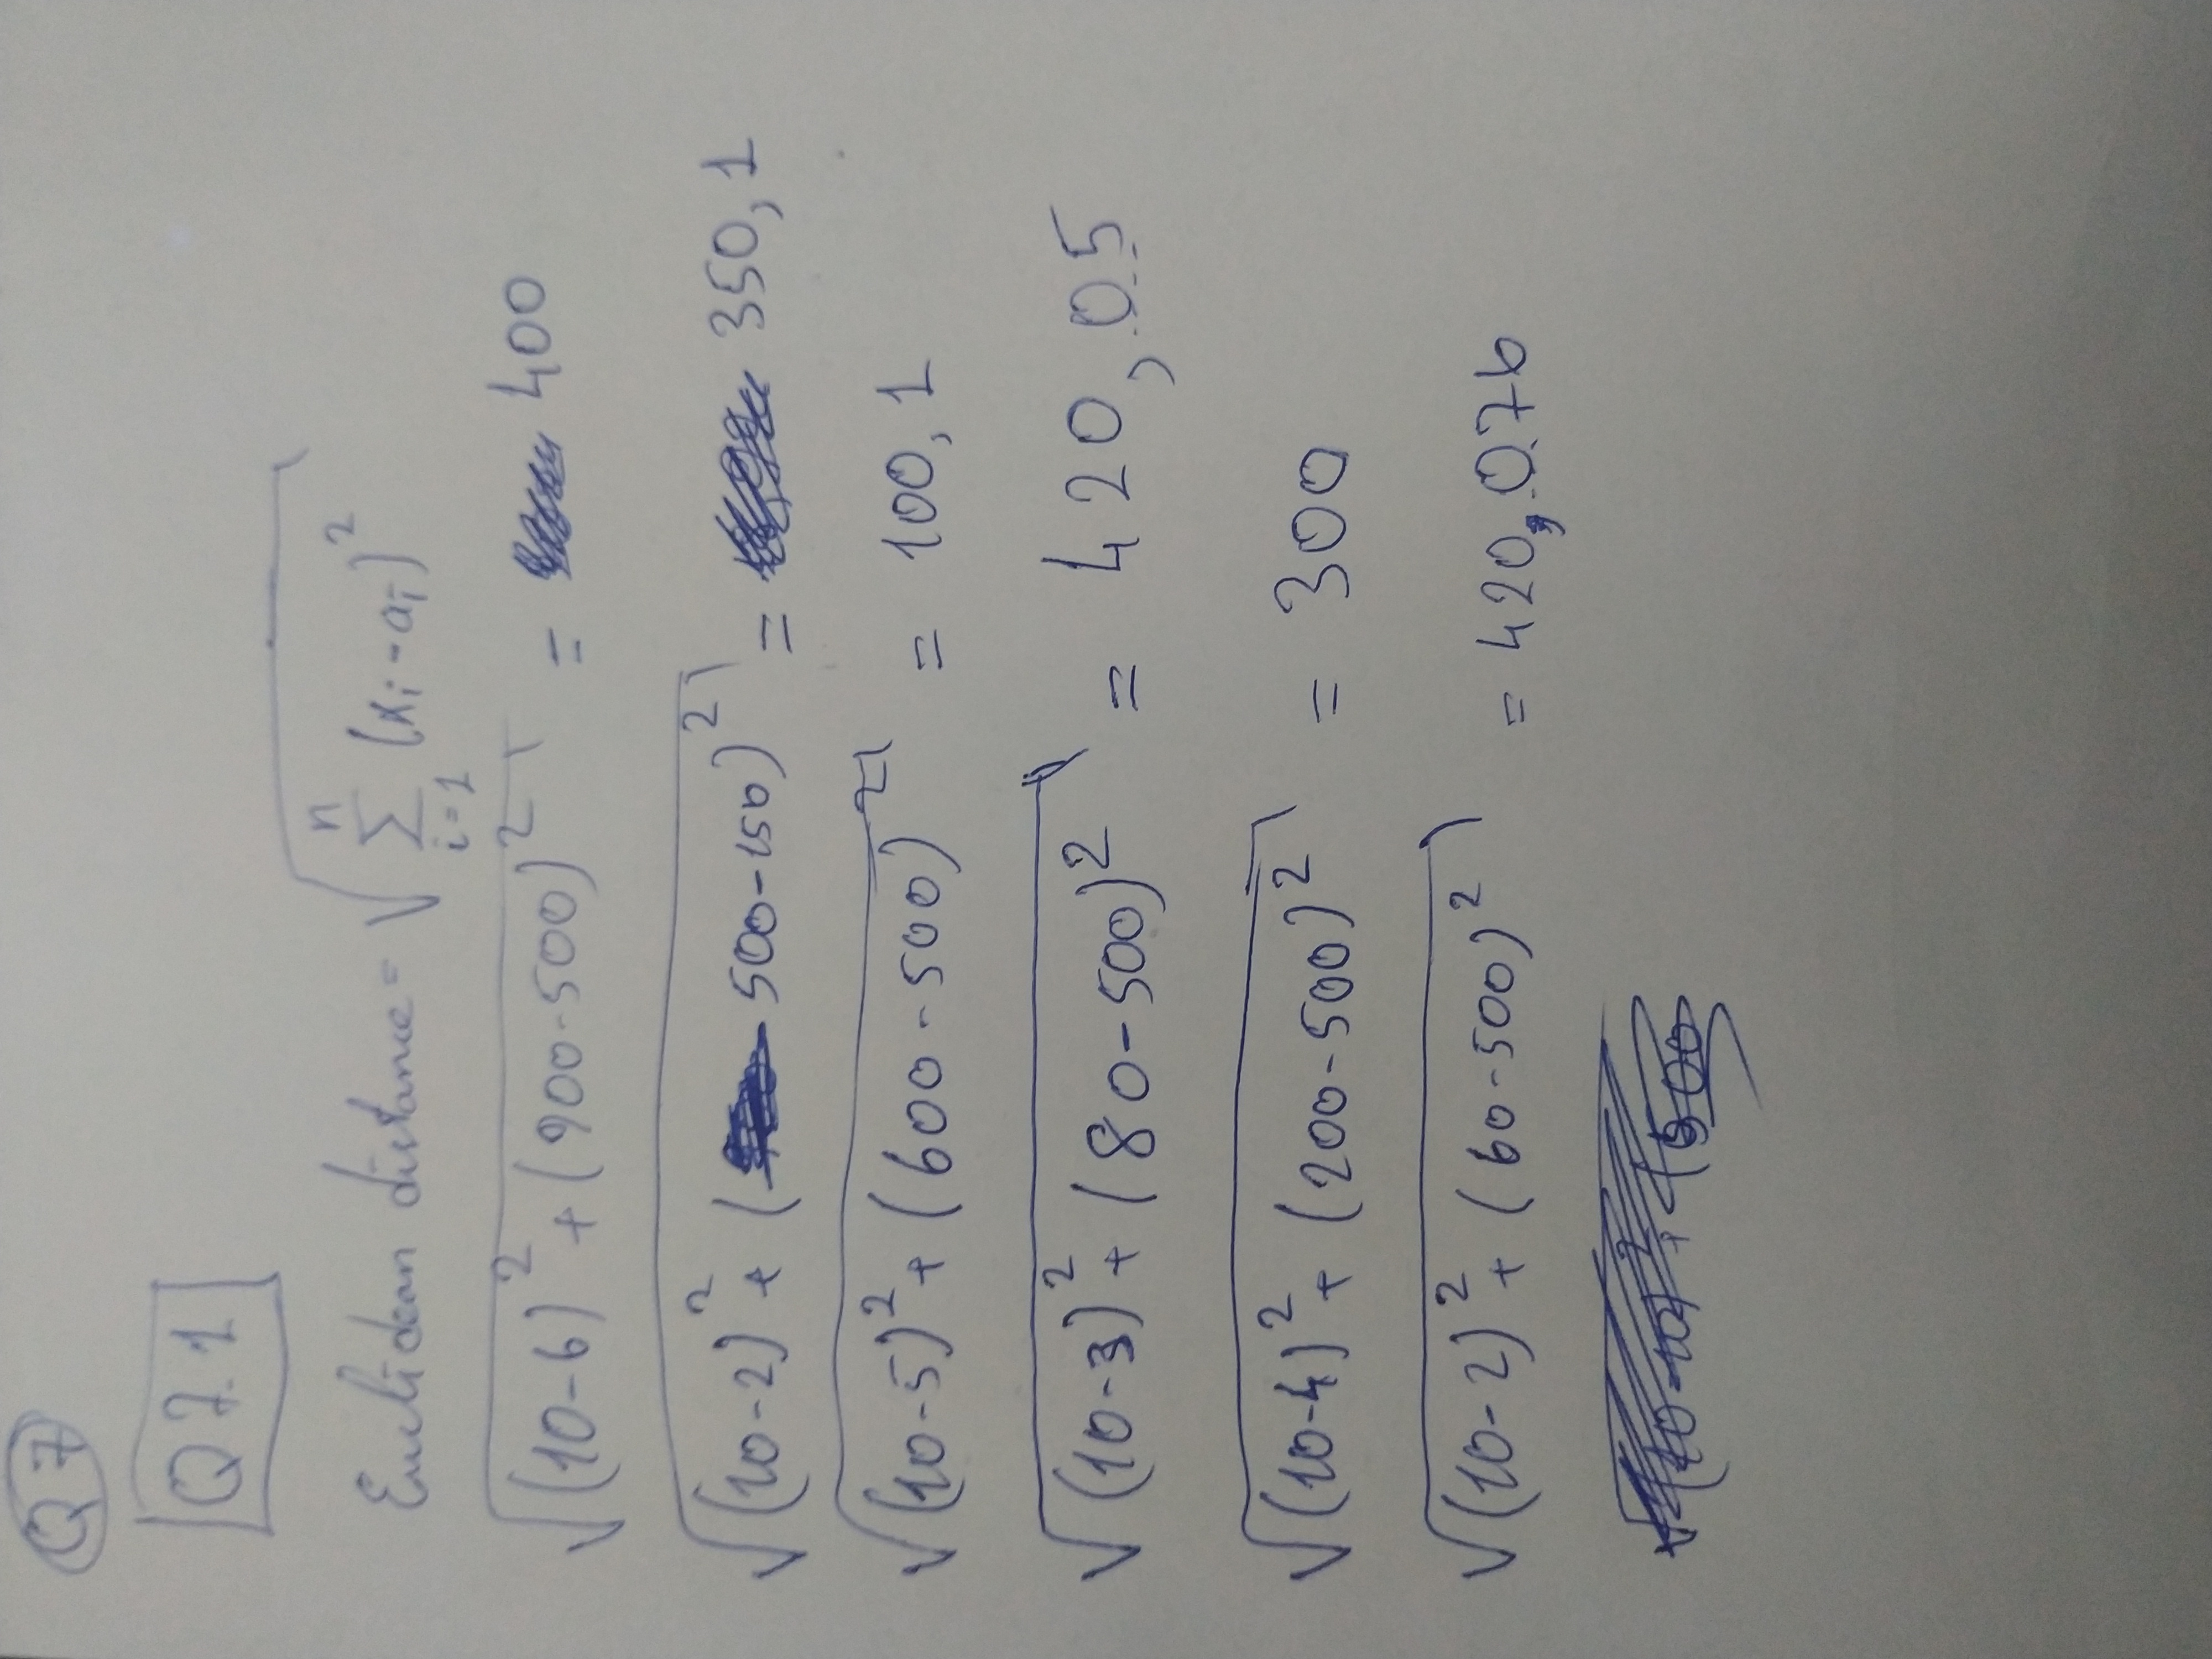 Q7
Q7.1
Euclidean distance = √ n Σ i=1 (xᵢ - aᵢ)²
√(10-6)² + (900-500)² = 400
√(10-2)² + (500-150)² = 350,1
√(10-5)² + (600-500)² = 100,1
√(10-3)² + (80-500)² = 420,05
√(10-4)² + (200-500)² = 300
√(10-2)² + (60-500)² = 420,076